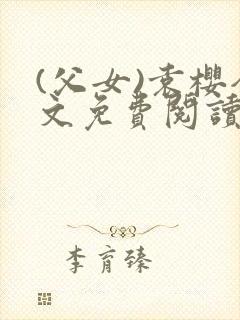 (父女)袁樱
文免费阅读
李育臻